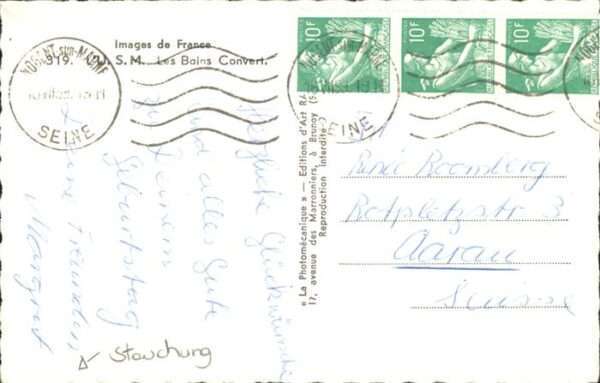 Images de France
919. L'U. S. M. Les Bains Convert.
NOGENT-sur-MARNE
SEINE
10F
10F
10F
SEINE
« La Photomécanique » — Editions d'Art RA
17, avenue des Marronniers, à Brunoy (S.
Reproduction interdite
Herzliche Glückwünsche
und alles Gute
zu Deinem
Geburtstag
Deine Freundin
Margrit
Stauchung
Renée Roomberg
Rotpletzstr 3
Aarau
Suisse